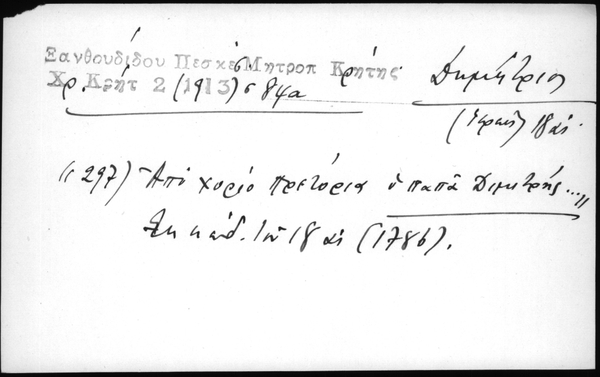 Ξανθουδίδου Πεσκέ Μητροπ Κρήτης
Χρ. Κρήτ 2 (1913) σ 84α
Δημήτριος
(ιερεύς) 18 αἰ.
(( 297) Ἀπὸ χοριό Πρετόρια ὁ παπᾶ Διμιτρής...))
Ἐκ κώδ. τοῦ 18 αἰ (1786).